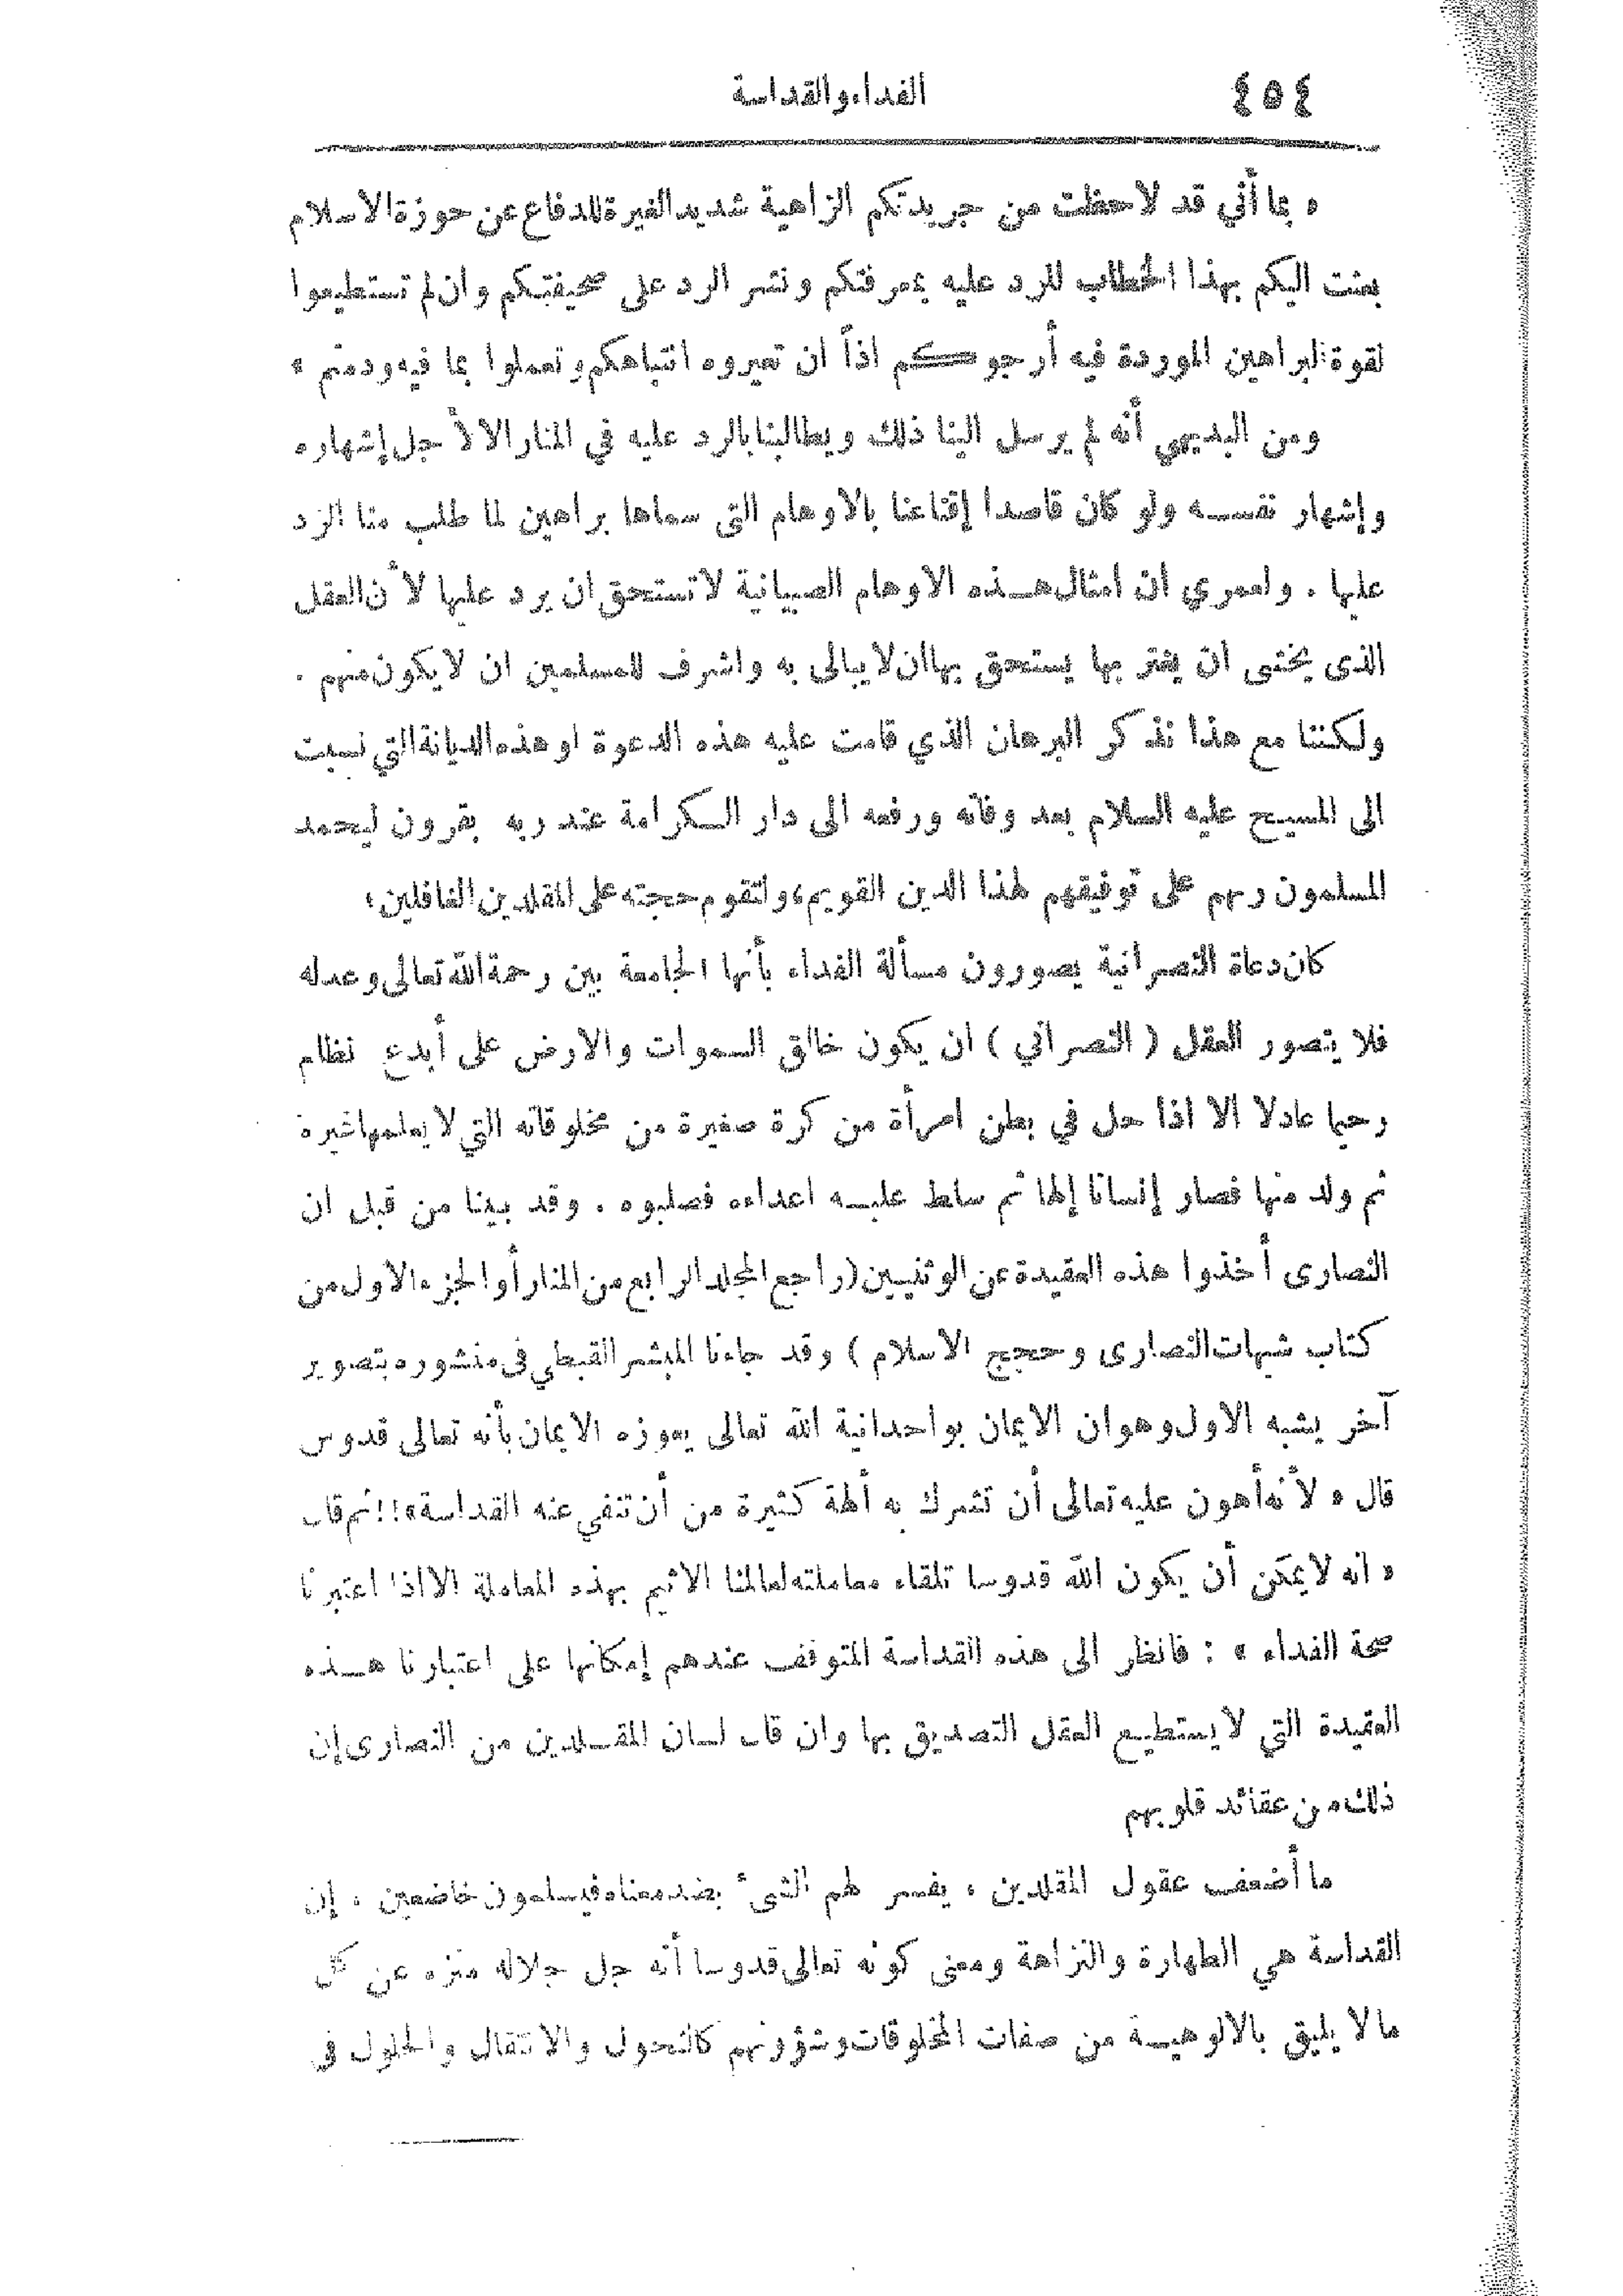 ٤٥٤
الفداء والقداسة
« بما أني قد لاحظت من جريدتكم الزاهية شديد الغيرة للدفاع عن حوزة الاسلام
بعثت اليكم بهذا الخطاب للرد عليه بمعرفتكم ونشر الرد على صحيفتكم وان لم تستطيعوا
لقوة البراهين الموردة فيه أرجوكم اذاً ان تعيروه انتباهكم وتعملوا بما فيه ودمتم »
ومن البديهي أنه لم يرسل الينا ذلك ويطالبنا بالرد عليه في المنار الا لأجل إشهاره
وإشهار نفسه ولو كان قاصدا إقناعنا بالاوهام التى سماها براهين لما طلب منا الرد
عليها . ولعمري ان امثال هذه الاوهام الصبيانية لا تستحق ان يرد عليها لأن العقل
الذى يخشى ان يغتر بها يستحق بها ان لا يبالى به واشرف للمسلمين ان لا يكون منهم .
ولكننا مع هذا نذكر البرهان الذي قامت عليه هذه الدعوة او هذه الديانة التي نسبت
الى المسيح عليه السلام بعد وفاته ورفعه الى دار الكرامة عند ربه بقرون ليحمد
المسلمون ربهم على توفيقهم لهذا الدين القويم، ولتقوم حجته على المقلدين الغافلين،
كان دعاة النصرانية يصورون مسألة الفداء بأنها الجامعة بين رحمة الله تعالى وعدله
فلا يتصور العقل ( النصراني ) ان يكون خالق السموات والارض على أبدع نظام
رحيما عادلا الا اذا حل في بطن امرأة من كرة صغيرة من مخلوقاته التي لا يعلمها غيره
ثم ولد منها فصار إنسانا إلها ثم سلط عليه اعداءه فصلبوه . وقد بينا من قبل ان
النصارى أخذوا هذه العقيدة عن الوثنيين (راجع المجلد الرابع من المنار أو الجزء الاول من
كتاب شبهات النصارى وحجج الاسلام ) وقد جاءنا المبشر القبطي فى منشوره بتصوير
آخر يشبه الاول وهو ان الايمان بواحدانية الله تعالى يعوزه الايمان بأنه تعالى قدوس
قال « لأنه أهون عليه تعالى أن تشرك به ألهة كثيرة من أن تنفي عنه القداسة »!! ثم قال
« انه لا يمكن أن يكون الله قدوسا تلقاء معاملته لعالمنا الاثيم بهذه المعاملة الا اذا اعتبرنا
صحة الفداء » : فانظر الى هذه القداسة المتوقف عندهم إمكانها على اعتبارنا هذه
العقيدة التي لا يستطيع العقل التصديق بها وان قال لسان المقلدين من النصارى إن
ذلك من عقائد قلوبهم
ما أضعف عقول المقلدين ، يفسر لهم الشىء بضد معناه فيسلمون خاضعين ، إن
القداسة هي الطهارة والنزاهة ومعنى كونه تعالى قدوسا أنه جل جلاله منزه عن كل
ما لا يليق بالالوهية من صفات المخلوقات وشؤونهم كالتحول والانتقال والحلول فى